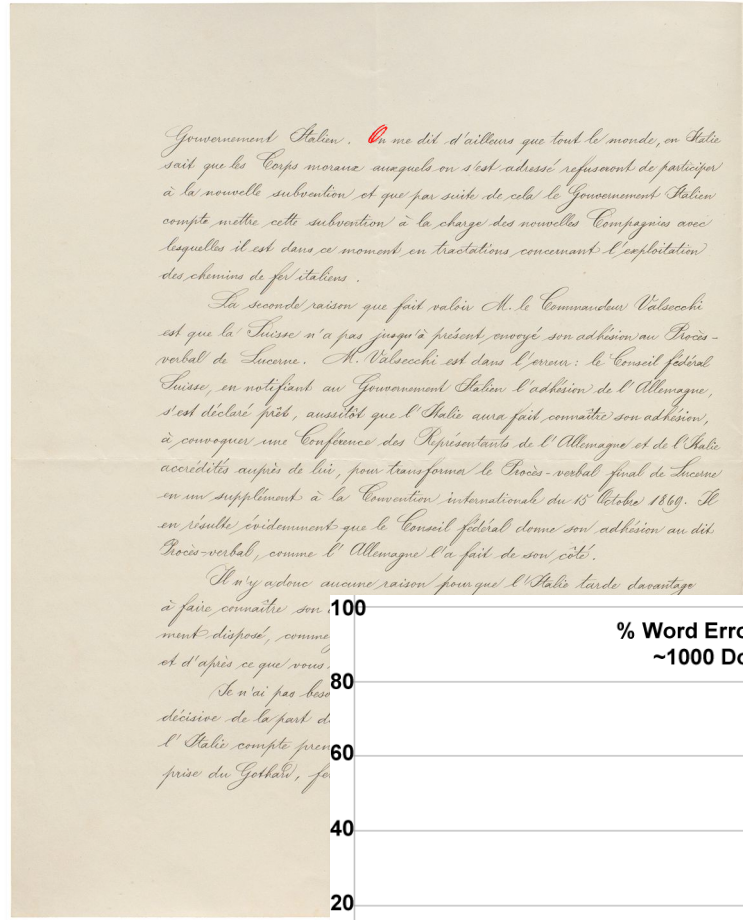 Gouvernement Italien. On me dit d'ailleurs que tout le monde, en Italie
sait que les Corps moraux auxquels on s'est adressé refuseront de participer
à la nouvelle subvention et que par suite de cela le Gouvernement Italien
compte mettre cette subvention à la charge des nouvelles Compagnies avec
lesquelles il est dans ce moment en tractations concernant l'exploitation
des chemins de fer italiens.
La seconde raison que fait valoir M. le Commandeur Valsecchi
est que la Suisse n'a pas jusqu'à présent envoyé son adhésion au Procès-
verbal de Lucerne. M. Valsecchi est dans l'erreur: le Conseil fédéral
Suisse, en notifiant au Gouvernement Italien l'adhésion de l'Allemagne,
s'est déclaré prêt, aussitôt que l'Italie aura fait connaître son adhésion,
à convoquer une Conférence des Représentants de l'Allemagne et de l'Italie
accrédités auprès de lui, pour transformer le Procès-verbal final de Lucerne
en un supplément à la Convention internationale du 15 Octobre 1869. Il
en résulte évidemment que le Conseil fédéral donne son adhésion au dit
Procès-verbal, comme l'Allemagne l'a fait de son côté.
Il n'y a donc aucune raison pour que l'Italie tarde davantage
à faire connaître son
ment disposé, comme
et d'après ce que vous
Je n'ai pas beso
décisive de la part d
l'Italie compte pren
prise du Gothard, fe
100
% Word Erro
~1000 Do
80
60
40
20